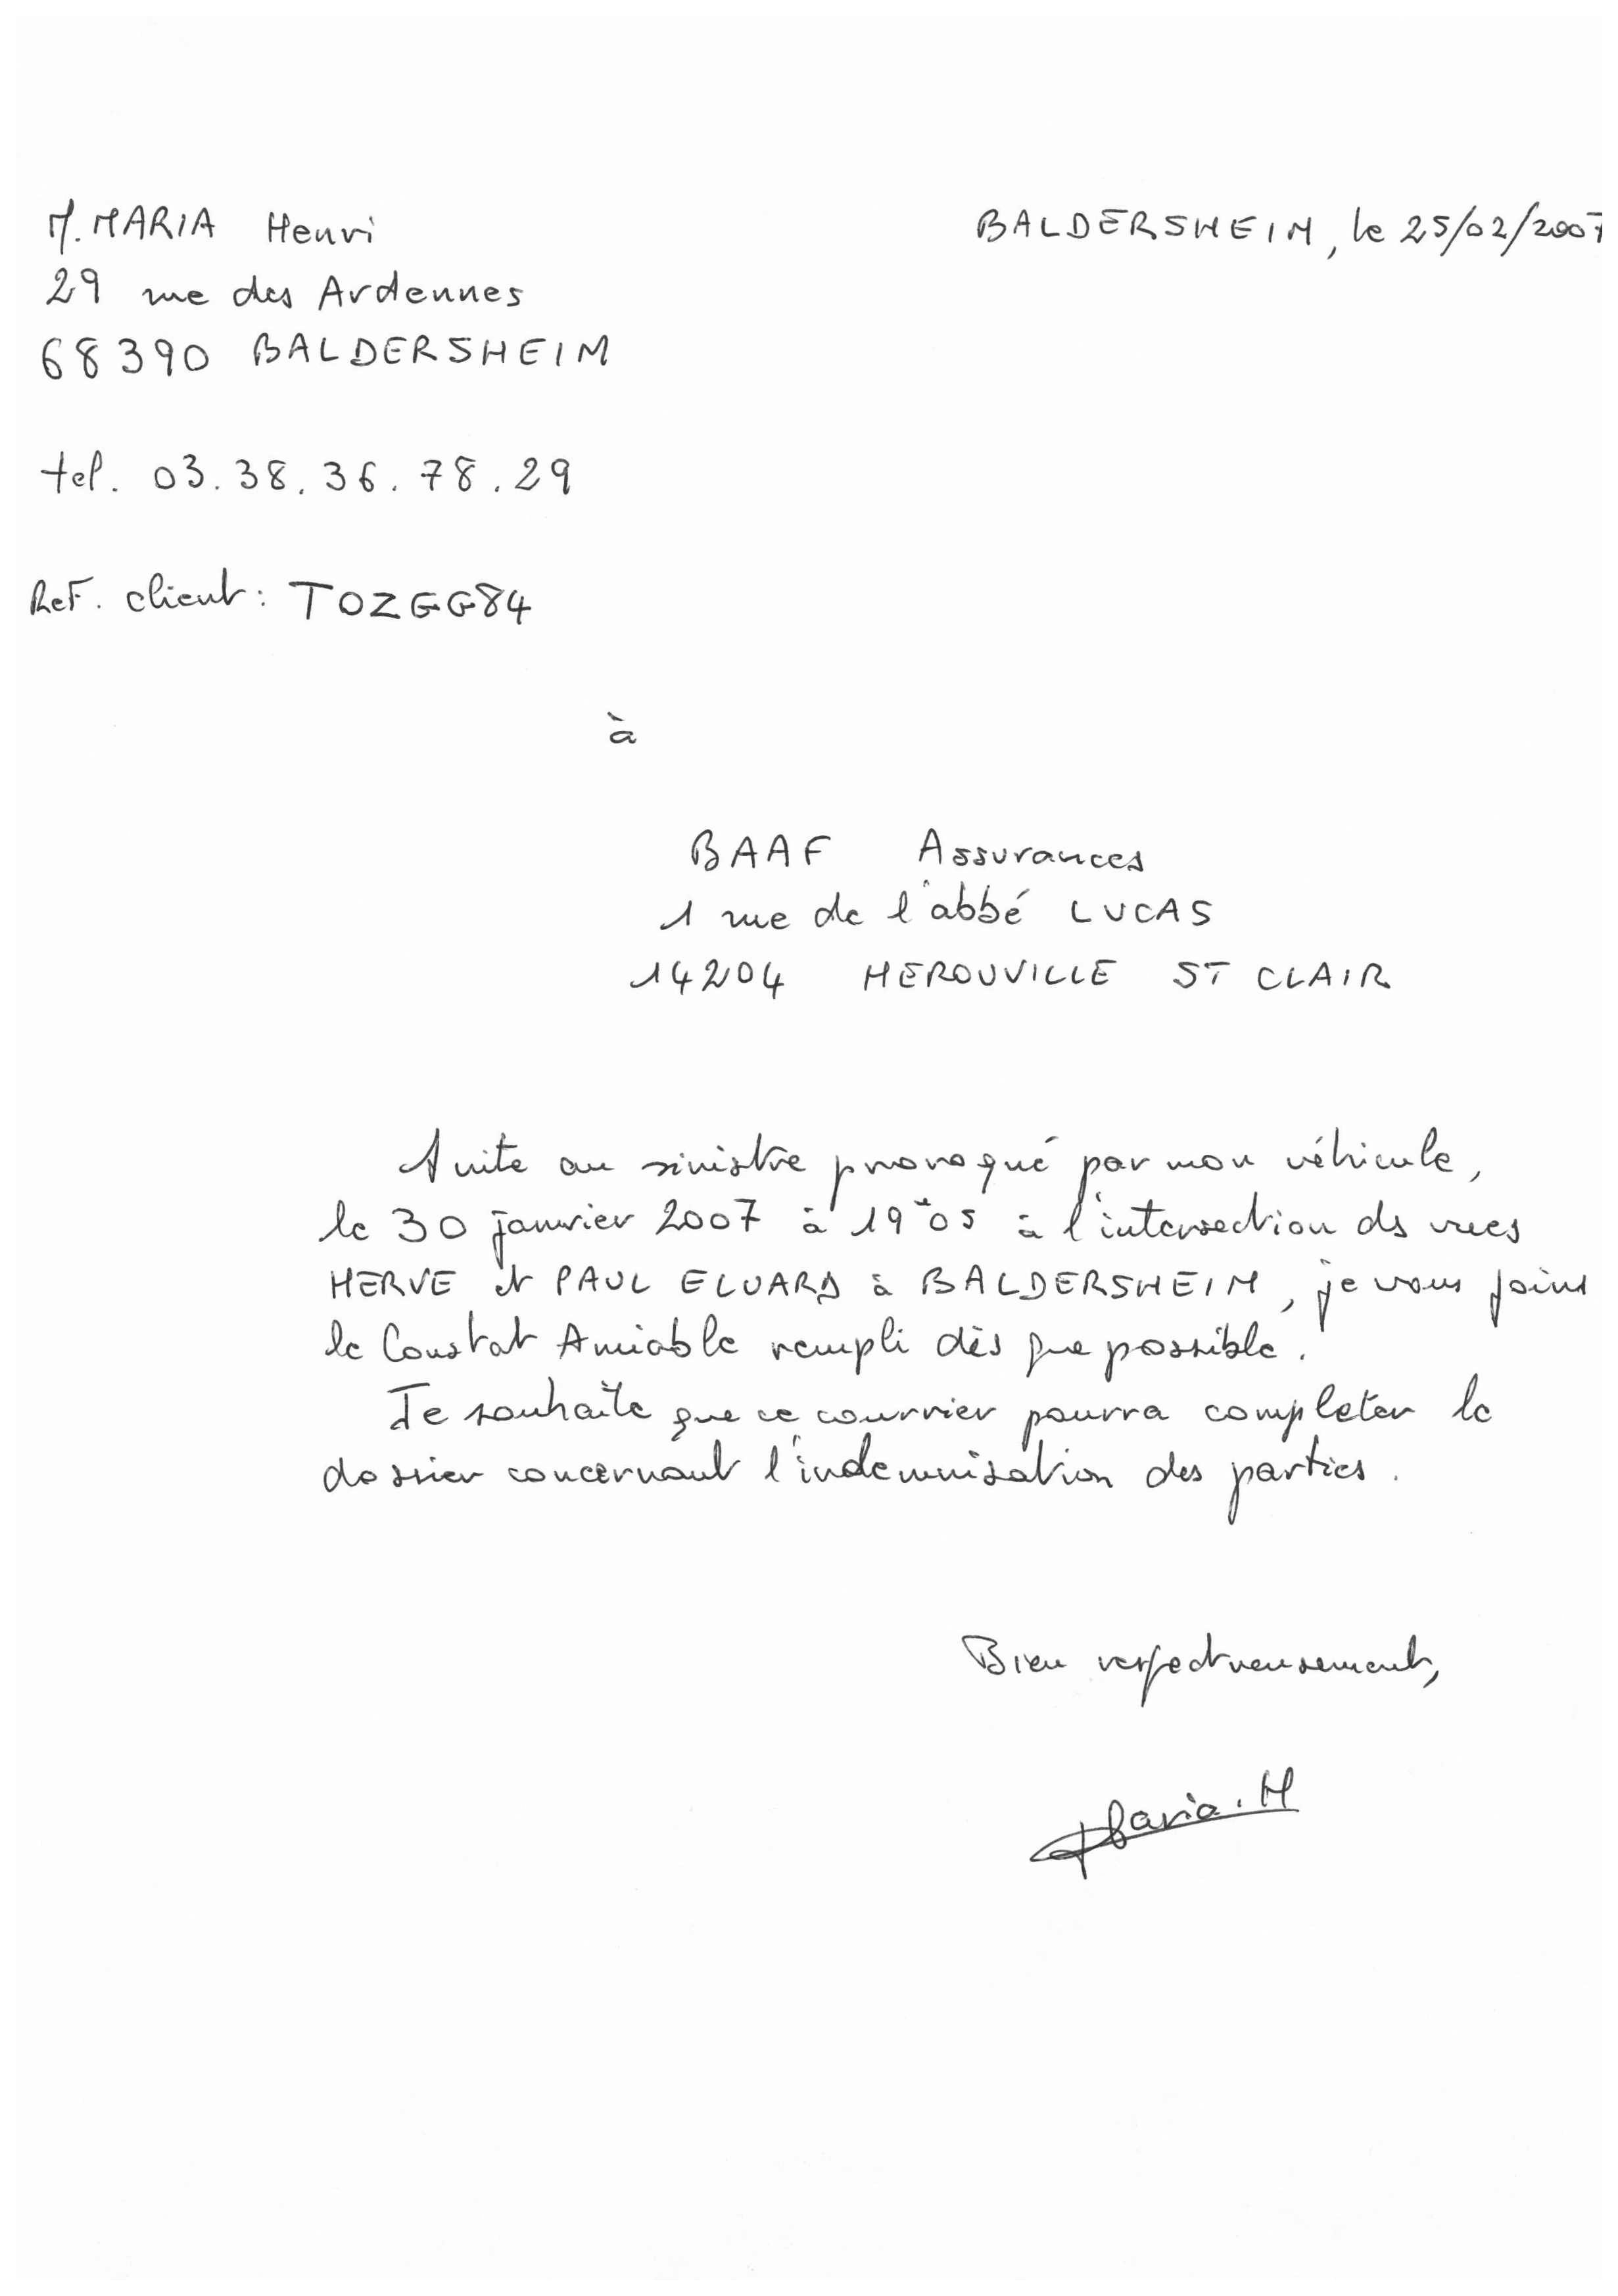 M. MARIA Henri
BALDERSHEIM, le 25/02/2007
29 rue des Ardennes
68390 BALDERSHEIM
tel. 03.38.36.78.29
Ref. client : TOZGG84
à
BAAF Assurances
1 rue de l'abbé LUCAS
14204 HEROUVILLE ST CLAIR
Suite au sinistre provoqué par mon véhicule,
le 30 janvier 2007 à 19h05 à l'intersection ds rues
HERVE et PAUL ELUARD à BALDERSHEIM, je vous joins
le Constat Amiable rempli dès que possible.
Je souhaite que ce courrier pourra completer le
dossier concernant l'indemnisation des parties.
Bien respectueusement,
Maria.H